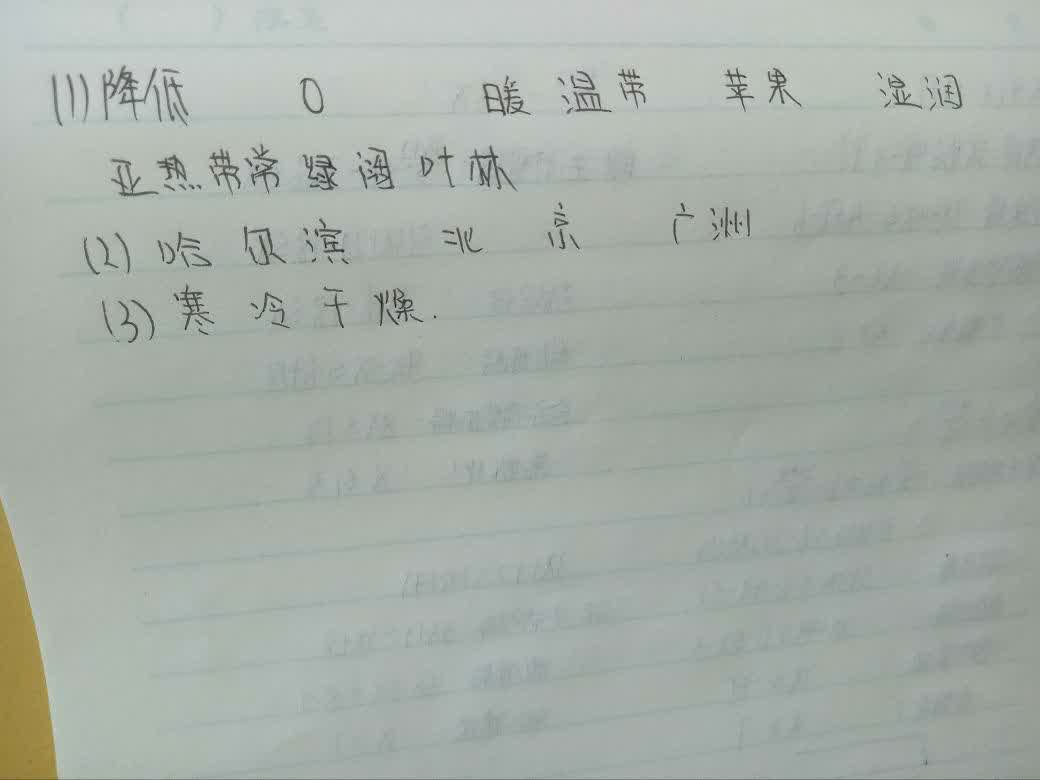 (1)降低 0 暖温带 苹果 湿润
亚热带常绿阔叶林
(2)哈尔滨 北京 广州
(3)寒冷干燥.